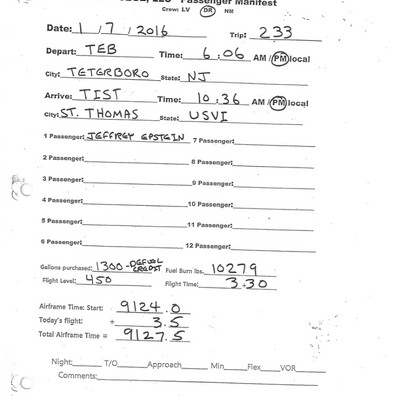 LLC - Passenger Manifest
Crew: LV DR NM
Date: 1 / 7 / 2016 Trip: 233
Depart: TEB Time: 6:06 AM / PM local
City: TETERBORO State: NJ
Arrive: TIST Time: 10:36 AM / PM local
City: ST. THOMAS State: USVI
1 Passenger: JEFFREY EPSTEIN 7 Passenger:
2 Passenger: 8 Passenger:
3 Passenger: 9 Passenger:
4 Passenger: 10 Passenger:
5 Passenger: 11 Passenger:
6 Passenger: 12 Passenger:
Gallons purchased: 1300 - DEFUEL CREDIT Fuel Burn lbs. 10279
Flight Level: 450 Flight Time: 3.30
Airframe Time: Start: 9124.0
Today's flight: + 3.5
Total Airframe Time = 9127.5
Night: T/O Approach Min Flex VOR
Comments: